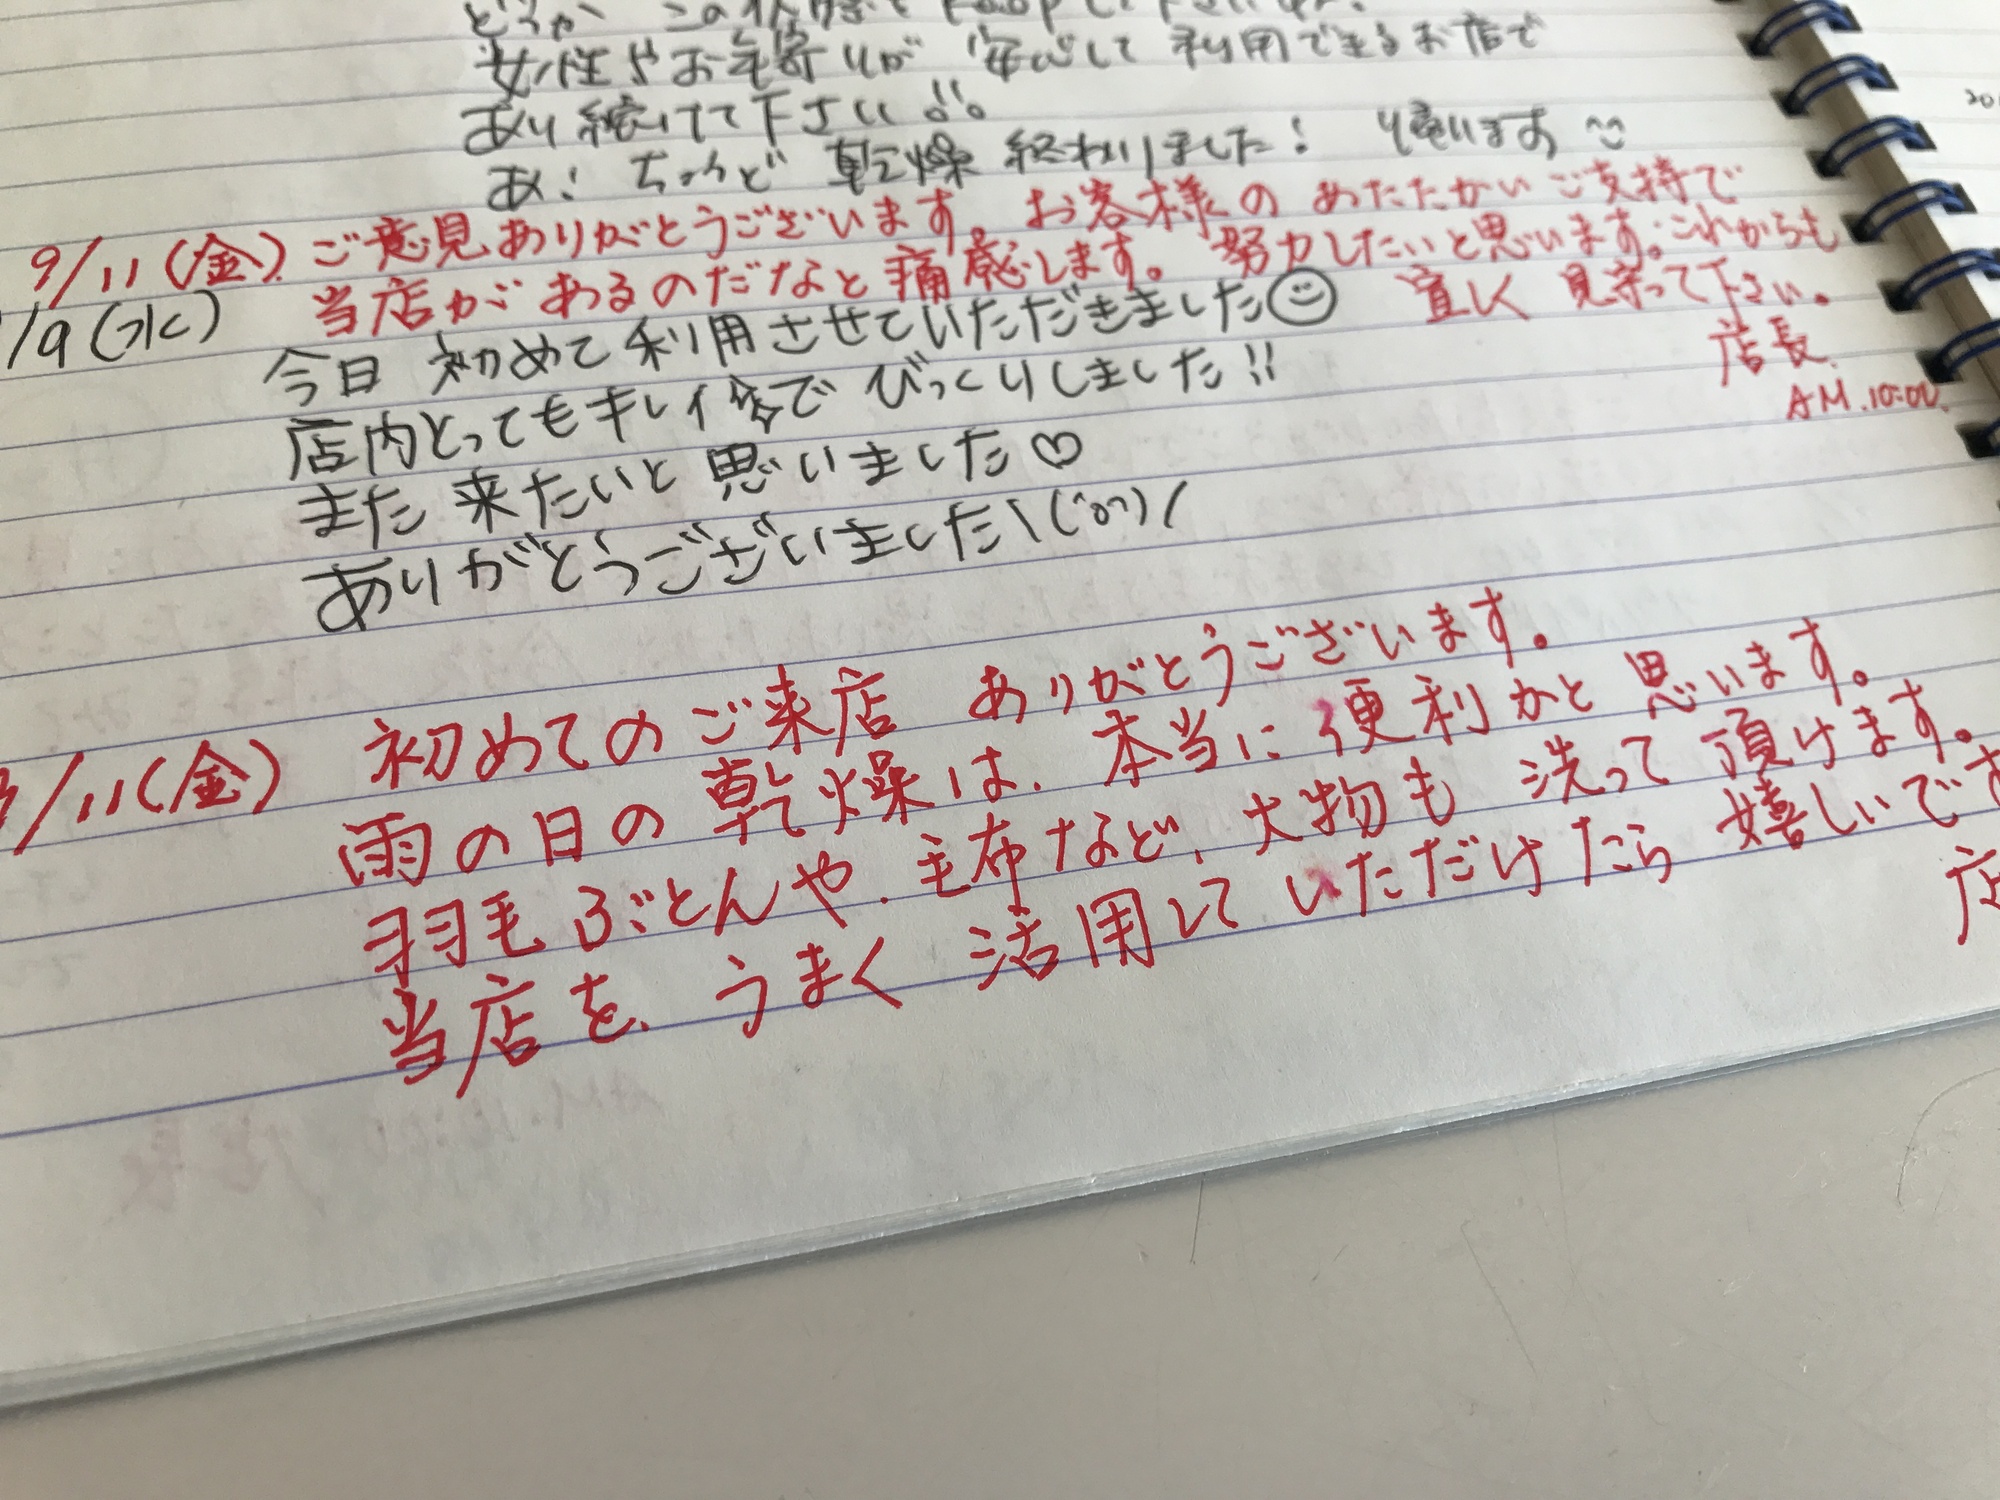 どうか この
女性やお年寄りが 安心して 利用できるお店で
あり続けて下さい!!
あ! ちょうど 乾燥 終わりました! ます
9/11(金) ご意見ありがとうございます。お客様の あたたかいご支持で
当店が あるのだなと痛感します。努力したいと思います。これからも
宜しく 見守って下さい。
店長.
AM.10:00.
/9(水)
今日 初めて利用させていただきました☺
店内とってもキレイでびっくりしました!!
また 来たいと思いました♡
ありがとうございました\(^o^)/
/11(金) 初めてのご来店 ありがとうございます。
雨の日の乾燥は、本当に便利かと思います。
羽毛ぶとんや、毛布など、大物も 洗って頂けます。
当店を、うまく活用していただけたら嬉しいです
店